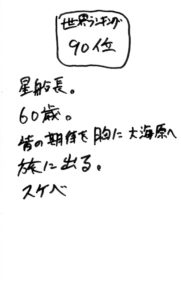 世界ランキング
90位
星船長。
60歳。
皆の期待を胸に大海原へ
旅に出る。
スケベ